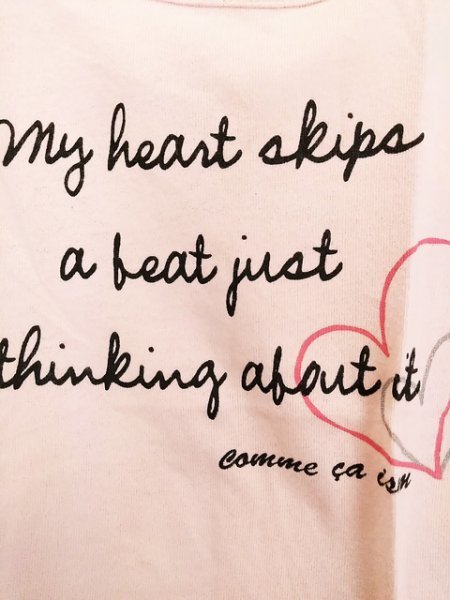 My heart skips
a beat just
thinking about it
comme ça ism